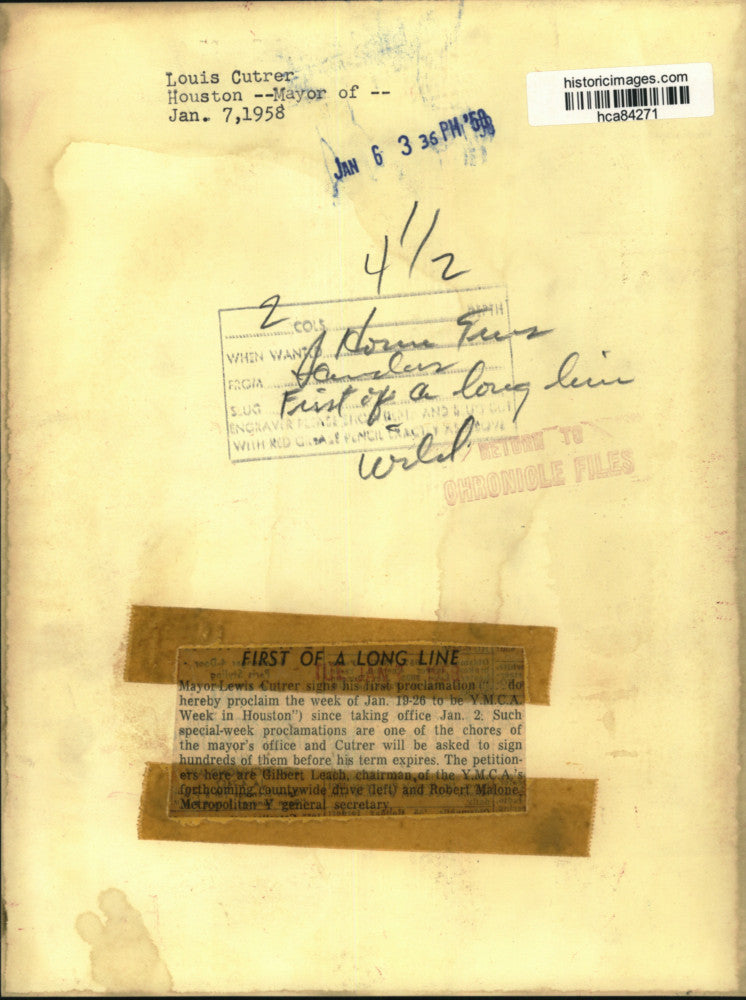 Louis Cutrer
Houston --Mayor of --
Jan. 7,1958
historicimages.com
hca84271
JAN 6 3 36 PM '58
4 1/2
2
COLS DEPTH
WHEN WANTED Home
FROM
SLUG First of a long line
ENGRAVER
WITH RED GREASE PENCIL
RETURN TO
CHRONICLE FILES
FIRST OF A LONG LINE
Mayor Lewis Cutrer signs his first proclamation (". . . do
hereby proclaim the week of Jan. 19-26 to be Y.M.C.A.
Week in Houston") since taking office Jan. 2. Such
special-week proclamations are one of the chores of
the mayor's office and Cutrer will be asked to sign
hundreds of them before his term expires. The petition-
ers here are Gilbert Leach, chairman of the Y.M.C.A.'s
forthcoming countywide drive (left) and Robert Malone,
Metropolitan Y general secretary.